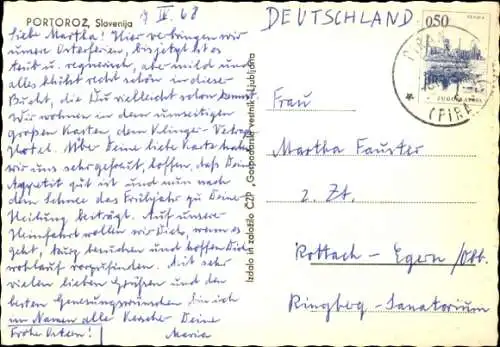 PORTOROŽ, Slovenija
9 IV. 68
Liebe Martha! Hier verbringen wir
unsere Osterferien, bis jetzt ist es
trüb u. regnerisch, aber mild und
alles blüht recht schön in dieser
Bucht, die Du vielleicht schon kennst.
Wir wohnen in dem umseitigen
großen Kasten, dem
Hotel. Über Deine liebe Karte haben
wir uns sehr gefreut, hoffen, daß Dein
Appetit gut ist und nun nach
dem Schnee das Frühjahr zu Deiner
Heilung beiträgt. Auf unserer
Heimfahrt wollen wir Dich, wenn es
geht, kurz besuchen und hoffen Dich
wohlauf vorzufinden. Mit sehr
vielen lieben Grüßen und den
besten Genesungswünschen bin ich
im Namen aller Deine
Frohe Ostern! Maria
Izdalo in založilo ČZP „Gospodarski vestnik" Ljubljana
DEUTSCHLAND
050
JUGOSLAVIJA
(PIRA
Frau
Martha Fauster
z. Zt.
Rottach-Egern/Obb.
Ringberg-Sanatorium